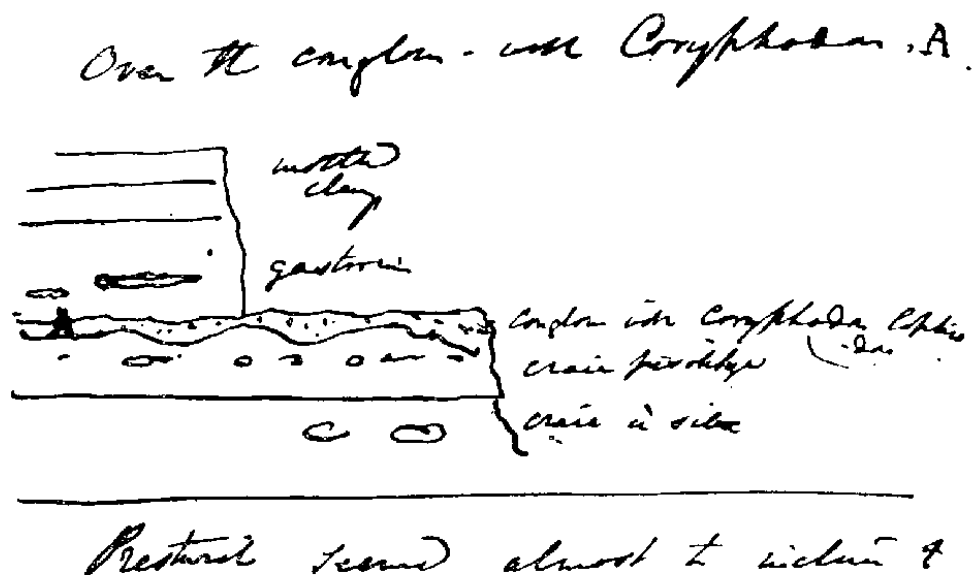 Over the conglom - with Coryphodon. A.
mottled
clay
gastornis
conglom with Coryphodon Lophio
-don
craie pisolitique
craie à silex
seemed almost to incline